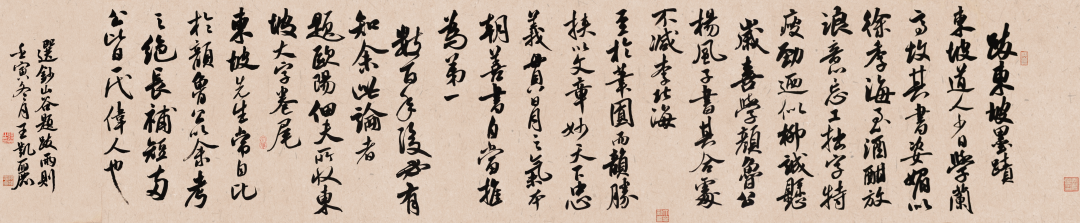 跋東坡墨蹟
東坡道人少日學蘭
亭故其書姿媚似
徐季海至酒酣放
浪意忘工拙字特
瘦勁迺似柳誠懸
中歲喜學顏魯公
楊風子書其合處
不減李北海
至於筆圜而韻勝
挾以文章妙天下忠
義貫日月之氣本
朝善書自當推
為第一
數百年後必有
知余此論者
題歐陽佃夫所收東
坡大字卷尾
東坡先生常自比
於顏魯公以余考
之絕長補短兩
公皆一代偉人也
選錄山谷題跋兩則
壬寅冬月王凱